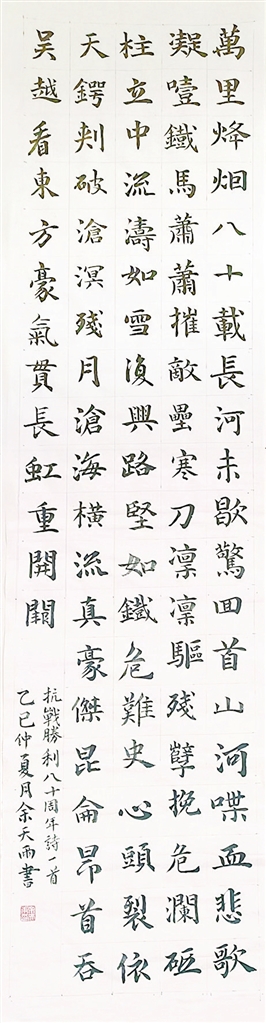 萬里烽烟八十載長河未歇驚回首山河喋血悲歌
凝噎鐵馬蕭蕭摧敵壘寒刀凜凜驅殘孽挽危瀾砥
柱立中流濤如雪復興路堅如鐵危難史心頭裂依
天鍔刺破滄溟殘月滄海橫流真豪傑昆侖昂首吞
吳越看東方豪氣貫長虹重開
抗戰勝利八十周年詩一首
乙巳仲夏月余天雨書